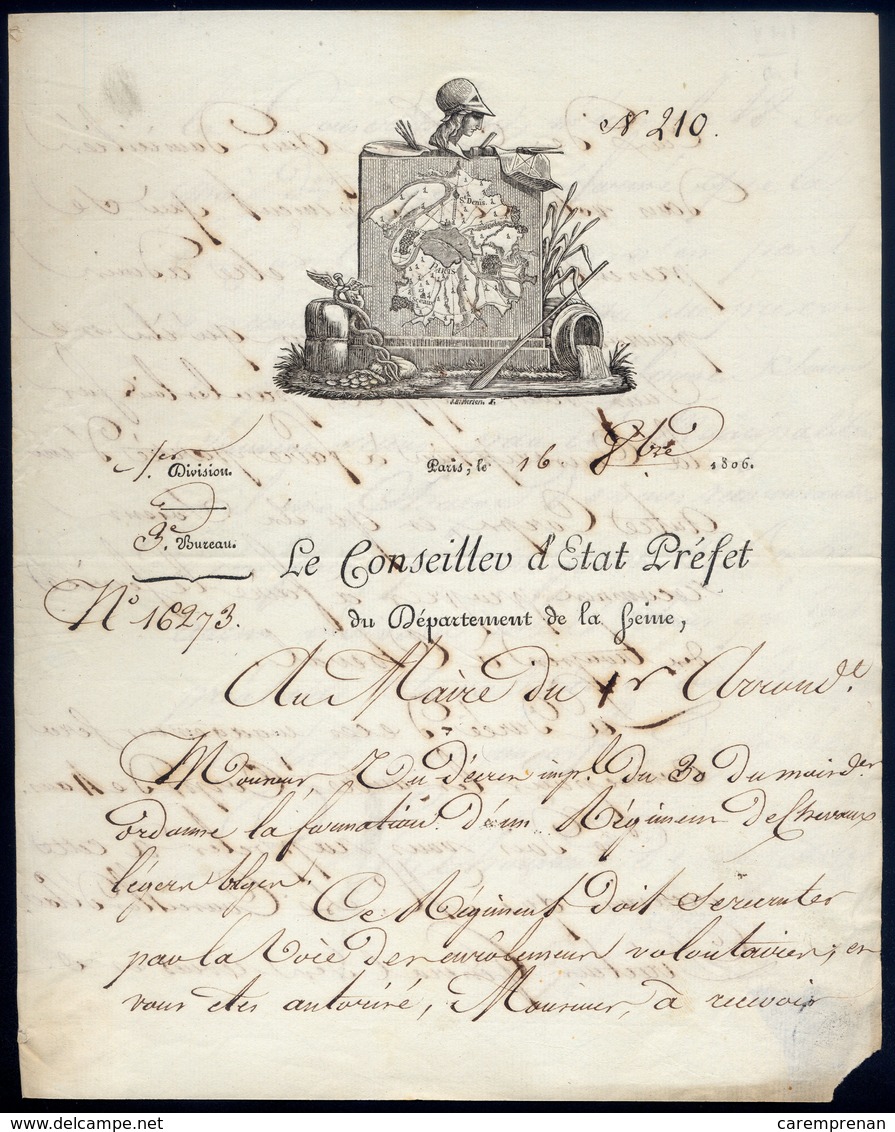 N 210.
St. Denis
PARIS
1er Division.
Paris, le 16 9bre 1806.
3e Bureau.
Le Conseiller d'Etat Préfet
No 16273.
du Département de la Seine,
Au Maire du 1r Arrondt.
Monsieur, Un décret impl. du 30 du mois der
ordonne la formation d'un Régiment de Chevaux
légers belges.
Ce Régiment doit se recruter
par la Voie des enrolemens volontaires, et
vous etes autorisé, Monsieur, à recevoir
delcampe.net
caremprenan